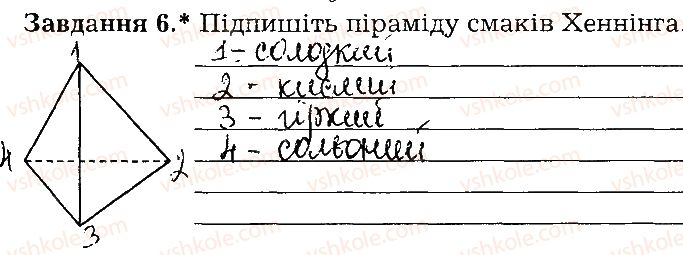 Завдання 6.* Підпишіть піраміду смаків Хеннінга.
1- солодкий
2 - кислий
3 - гіркий
4 - сольоний
1
4
2
3
vshkole.com